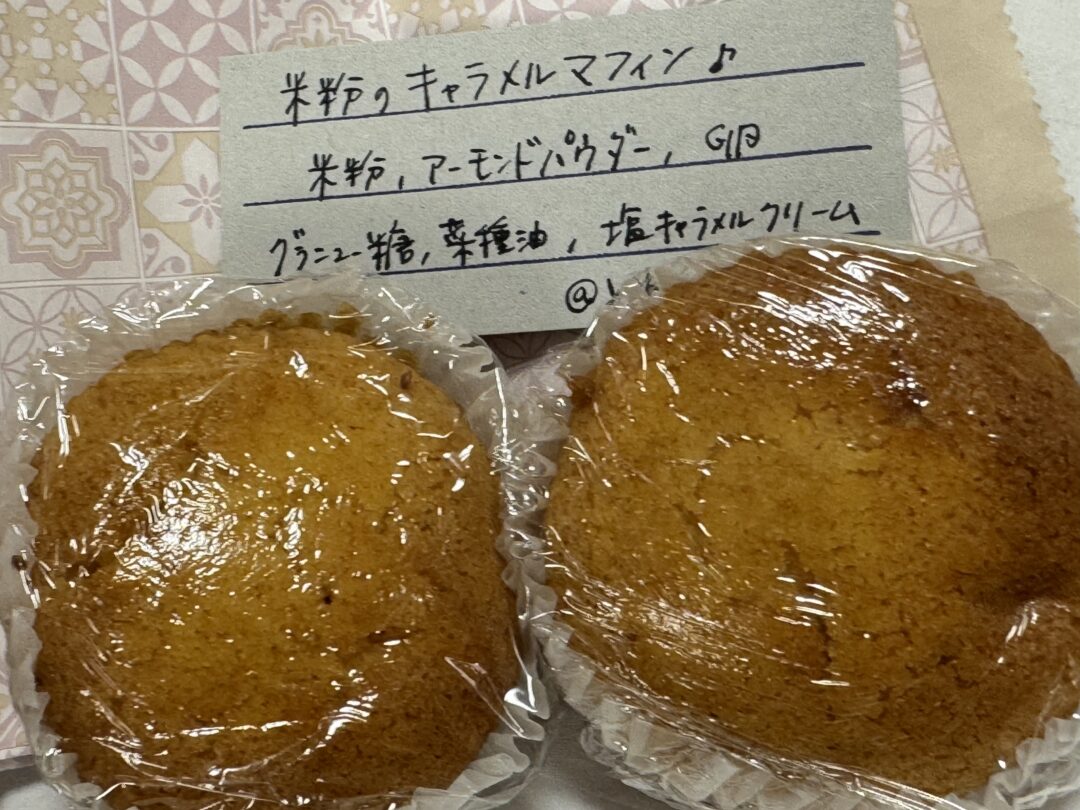 米粉のキャラメルマフィン♪
米粉、アーモンドパウダー、卵
グラニュー糖、菜種油、塩キャラメルクリーム
@